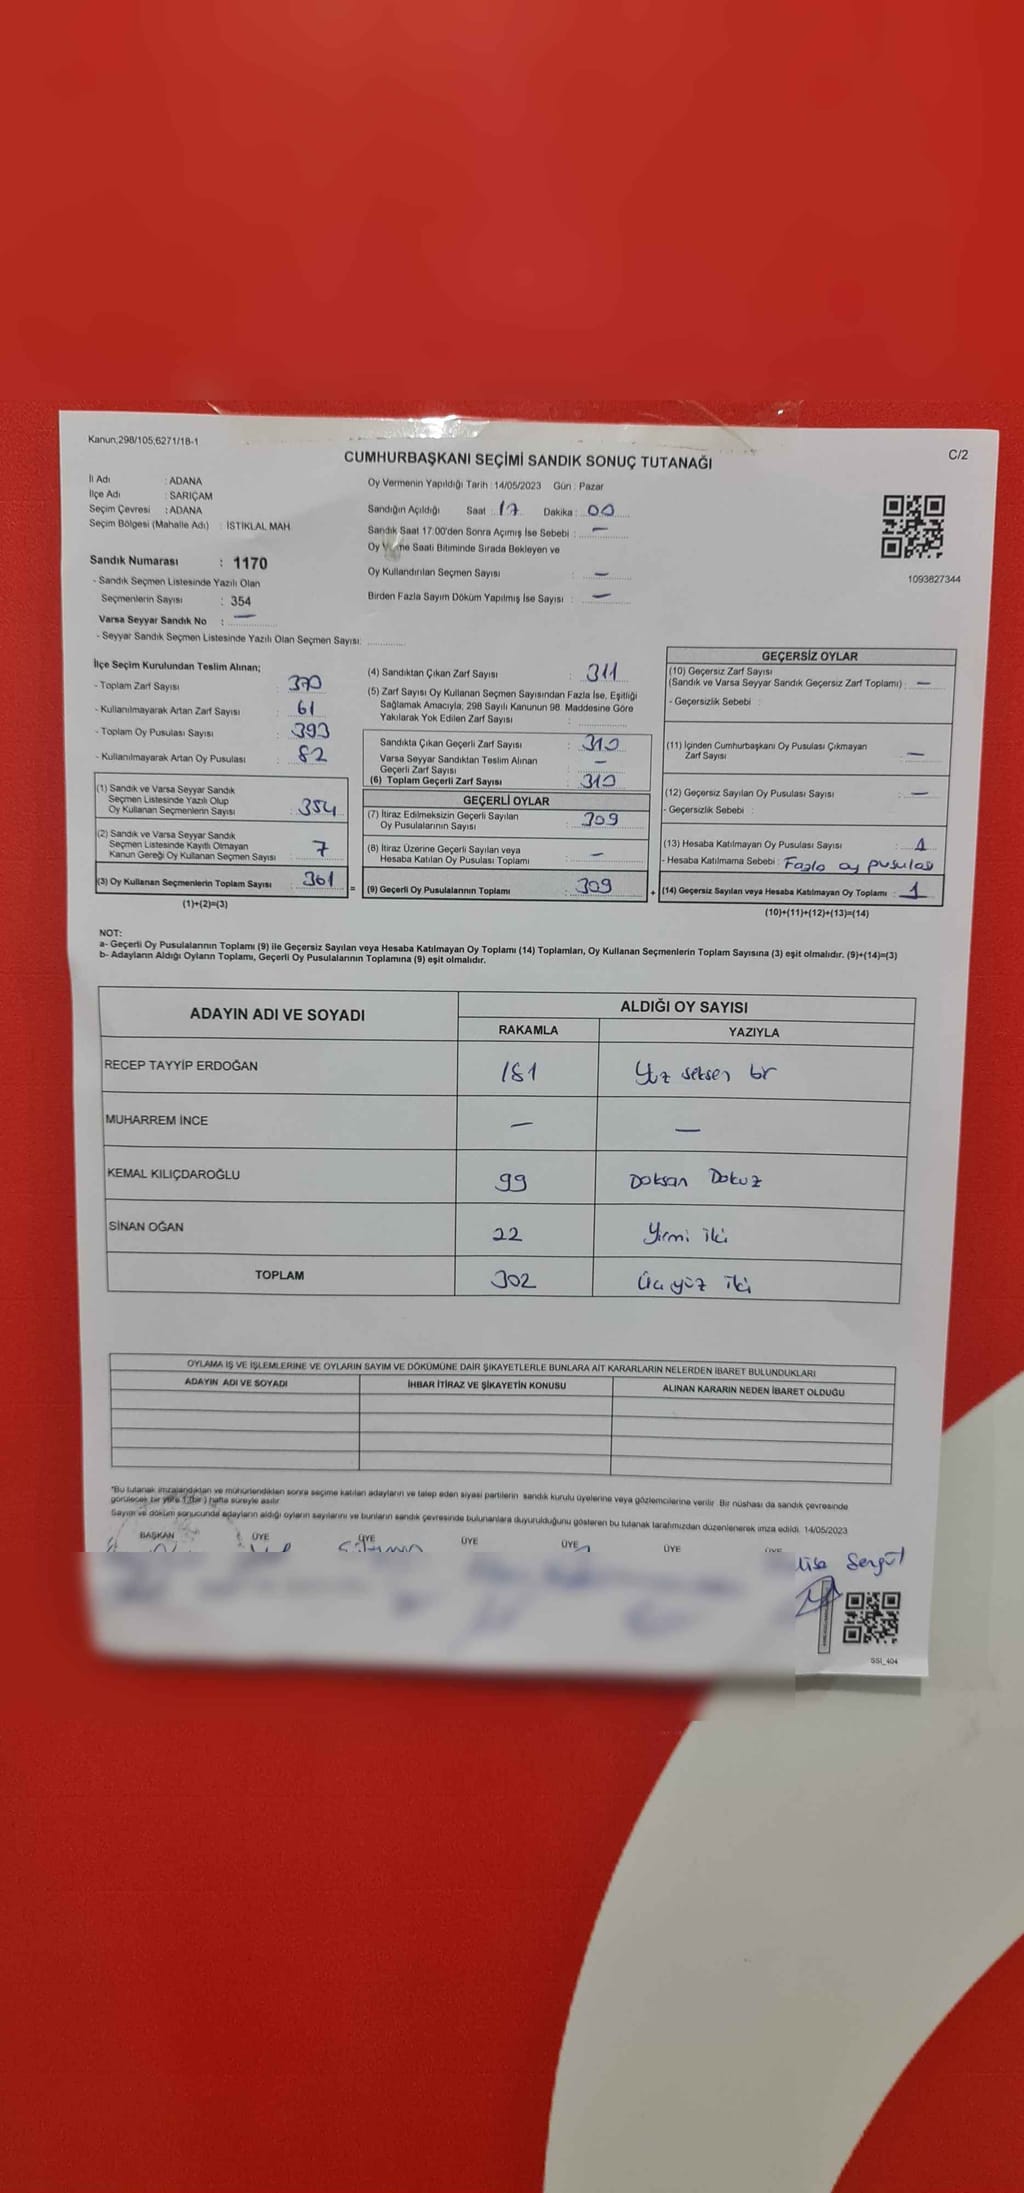 Kanun;298/105,6271/18-1
C/2
CUMHURBAŞKANI SEÇİMİ SANDIK SONUÇ TUTANAĞI
İl Adı : ADANA
İlçe Adı : SARIÇAM
Seçim Çevresi : ADANA
Seçim Bölgesi (Mahalle Adı) : İSTİKLAL MAH.
Sandık Numarası : 1170
- Sandık Seçmen Listesinde Yazılı Olan
Seçmenlerin Sayısı : 354
Varsa Seyyar Sandık No : —
- Seyyar Sandık Seçmen Listesinde Yazılı Olan Seçmen Sayısı:
Oy Vermenin Yapıldığı Tarih : 14/05/2023 Gün : Pazar
Sandığın Açıldığı Saat : 17 Dakika : 00
Sandık Saat 17.00'den Sonra Açımış İse Sebebi : —
Oy Saati Bitiminde Sırada Bekleyen ve
Oy Kullandırılan Seçmen Sayısı : —
Birden Fazla Sayım Döküm Yapılmış İse Sayısı : —
1093827344
İlçe Seçim Kurulundan Teslim Alınan;
- Toplam Zarf Sayısı : 370
- Kullanılmayarak Artan Zarf Sayısı : 61
- Toplam Oy Pusulası Sayısı : 393
- Kullanılmayarak Artan Oy Pusulası : 82
(1) Sandık ve Varsa Seyyar Sandık
Seçmen Listesinde Yazılı Olup
Oy Kullanan Seçmenlerin Sayısı : 354
(2) Sandık ve Varsa Seyyar Sandık
Seçmen Listesinde Kayıtlı Olmayan
Kanun Gereği Oy Kullanan Seçmen Sayısı : 7
(3) Oy Kullanan Seçmenlerin Toplam Sayısı : 361
(1)+(2)=(3)
=
(4) Sandıktan Çıkan Zarf Sayısı : 311
(5) Zarf Sayısı Oy Kullanan Seçmen Sayısından Fazla İse, Eşitliği
Sağlamak Amacıyla, 298 Sayılı Kanunun 98. Maddesine Göre
Yakılarak Yok Edilen Zarf Sayısı :
Sandıkta Çıkan Geçerli Zarf Sayısı : 310
Varsa Seyyar Sandıktan Teslim Alınan
Geçerli Zarf Sayısı : —
(6) Toplam Geçerli Zarf Sayısı : 310
GEÇERLİ OYLAR
(7) İtiraz Edilmeksizin Geçerli Sayılan
Oy Pusulalarının Sayısı : 309
(8) İtiraz Üzerine Geçerli Sayılan veya
Hesaba Katılan Oy Pusulası Toplamı : —
(9) Geçerli Oy Pusulalarının Toplamı : 309
+
GEÇERSİZ OYLAR
(10) Geçersiz Zarf Sayısı
(Sandık ve Varsa Seyyar Sandık Geçersiz Zarf Toplamı) : —
- Geçersizlik Sebebi :
(11) İçinden Cumhurbaşkanı Oy Pusulası Çıkmayan
Zarf Sayısı : —
(12) Geçersiz Sayılan Oy Pusulası Sayısı : —
- Geçersizlik Sebebi :
(13) Hesaba Katılmayan Oy Pusulası Sayısı : 1
- Hesaba Katılmama Sebebi : Fazla oy pusulası
(14) Geçersiz Sayılan veya Hesaba Katılmayan Oy Toplamı : 1
(10)+(11)+(12)+(13)=(14)
NOT:
a- Geçerli Oy Pusulalarının Toplamı (9) ile Geçersiz Sayılan veya Hesaba Katılmayan Oy Toplamı (14) Toplamları, Oy Kullanan Seçmenlerin Toplam Sayısına (3) eşit olmalıdır. (9)+(14)=(3)
b- Adayların Aldığı Oyların Toplamı, Geçerli Oy Pusulalarının Toplamına (9) eşit olmalıdır.
ADAYIN ADI VE SOYADI ALDIĞI OY SAYISI
RAKAMLA YAZIYLA
RECEP TAYYİP ERDOĞAN 181 Yüz seksen bir
MUHARREM İNCE — —
KEMAL KILIÇDAROĞLU 99 Doksan Dokuz
SİNAN OĞAN 22 Yirmi iki
TOPLAM 302 Üç yüz iki
OYLAMA İŞ VE İŞLEMLERİNE VE OYLARIN SAYIM VE DÖKÜMÜNE DAİR ŞİKAYETLERLE BUNLARA AİT KARARLARIN NELERDEN İBARET BULUNDUKLARI
ADAYIN ADI VE SOYADI İHBAR İTİRAZ VE ŞİKAYETİN KONUSU ALINAN KARARIN NEDEN İBARET OLDUĞU
*Bu tutanak imzalandıktan ve mühürlendikten sonra seçime katılan adayların ve talep eden siyasi partilerin sandık kurulu üyelerine veya gözlemcilerine verilir. Bir nüshası da sandık çevresinde
görülecek bir yere 1 (bir) hafta süreyle asılır.
Sayım ve döküm sonucunda adayların aldığı oyların sayılarını ve bunların sandık çevresinde bulunanlara duyurulduğunu gösteren bu tutanak tarafımızdan düzenlenerek imza edildi. 14/05/2023
BAŞKAN ÜYE ÜYE ÜYE ÜYE ÜYE ÜYE
SSI_404